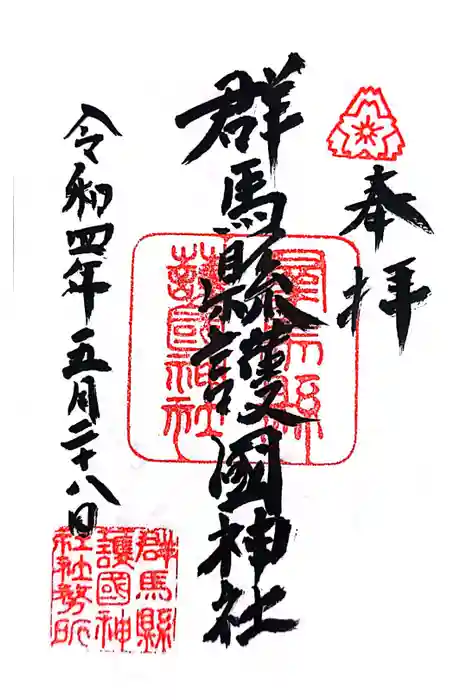 奉拝
群馬縣護國神社
令和四年五月二十八日
群馬縣
護國神社
群馬縣
護國神
社社務所